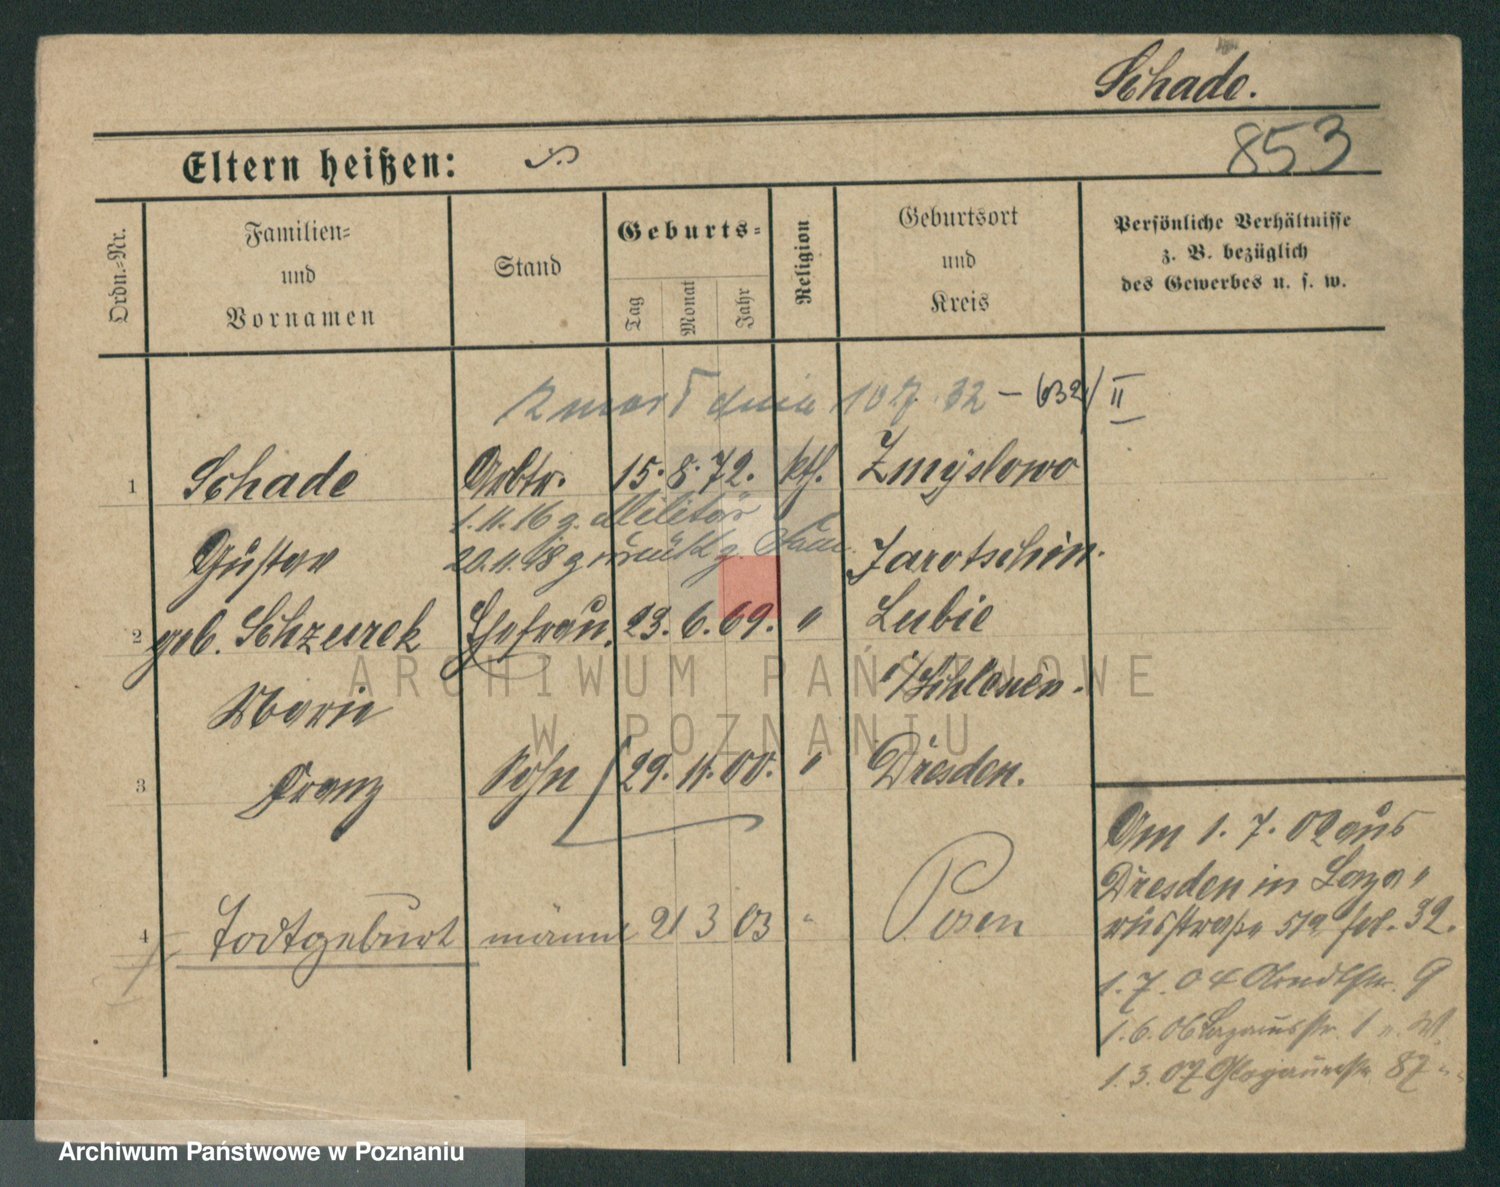 Schade.
853
Eltern heißen:
Ordn.-Nr.
Familien-
und
Vornamen
Stand
Geburts-
Tag
Monat
Jahr
Religion
Geburtsort
und
Kreis
Persönliche Verhältnisse
z. B. bezüglich
des Gewerbes u. s. w.
zmarł dnia 10 7. 32 – 632/II
1 Schade Arbtr. 15. 8. 72. kth. Zmyslowo
1. 11. 16 z. Militär
Gustav Jarotschin.
20. 11. 18 zurück z. Fam.
2 geb. Schzurek Ehefrau. 23. 6. 69. " Lubie
Marie i/Schlesien.
3 Franz Sohn 29. 11. 00. " Dresden.
4 Todtgeburt männl 21 3 03 " Posen
Am 1. 7. 02 aus
Dresden in Laza-
russtraße 51a fol. 32.
1. 7. 04 Arndtstr. 9
1. 6. 06 Lazarusstr. 1
1. 3. 07 Glogauerstr. 87
ARCHIWUM PAŃSTWOWE
W POZNANIU
Archiwum Państwowe w Poznaniu